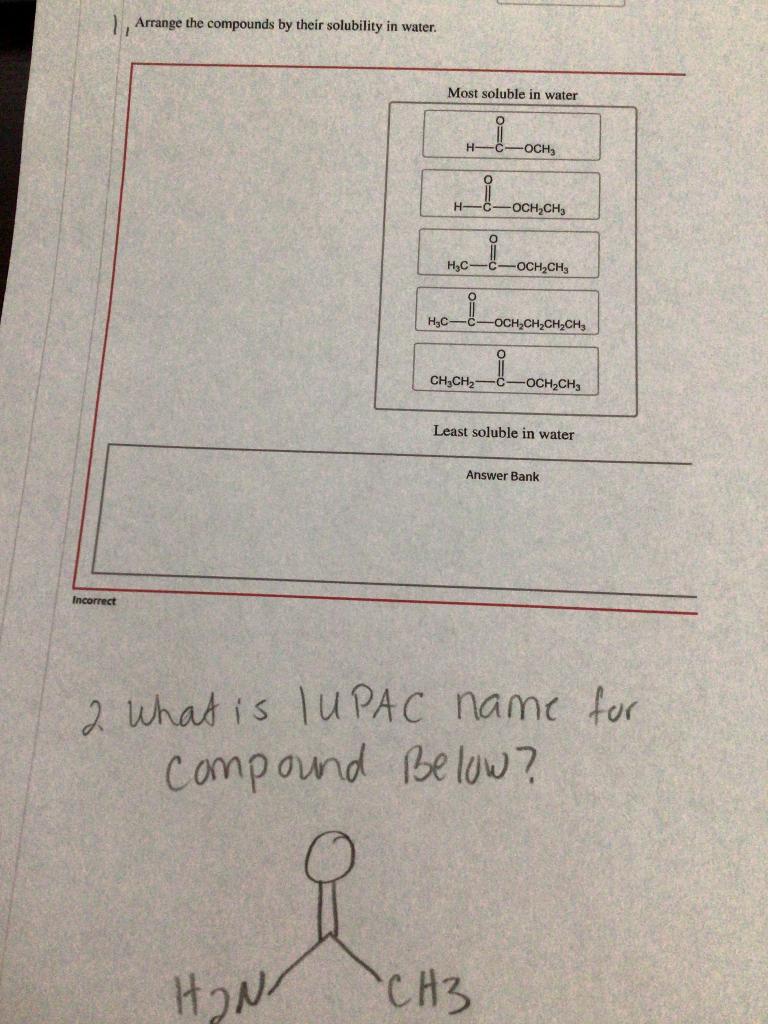 1, Arrange the compounds by their solubility in water.
Most soluble in water
O
H—C—OCH₃
O
H—C—OCH₂CH₃
O
H₃C—C—OCH₂CH₃
O
H₃C—C—OCH₂CH₂CH₂CH₃
O
CH₃CH₂—C—OCH₂CH₃
Least soluble in water
Answer Bank
Incorrect
2 What is IUPAC name for
Compound Below?
O
H2N CH3